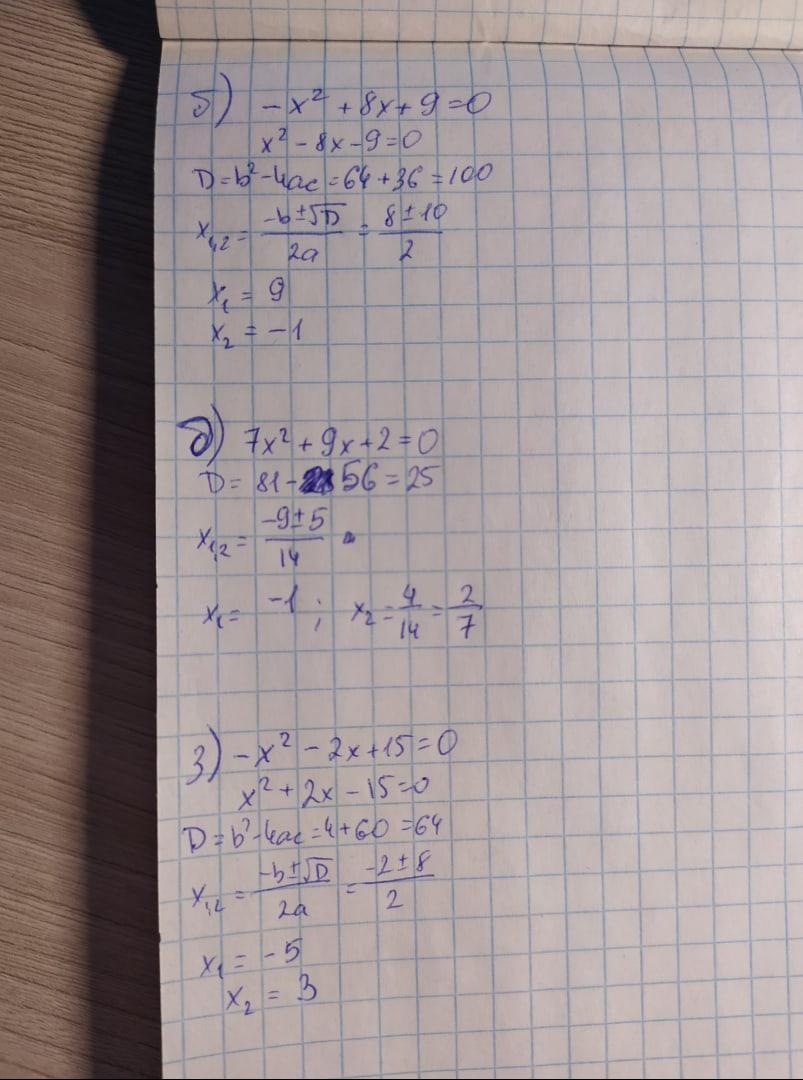 б) -x² + 8x + 9 = 0
x² - 8x - 9 = 0
D = b² - 4ac = 64 + 36 = 100
x₁,₂ = (-b ± √D)/(2a) = (8 ± 10)/2
x₁ = 9
x₂ = -1
д) 7x² + 9x + 2 = 0
D = 81 - 56 = 25
x₁,₂ = (-9 ± 5)/14
x₁ = -1 ; x₂ = 4/14 = 2/7
з) -x² - 2x + 15 = 0
x² + 2x - 15 = 0
D = b² - 4ac = 4 + 60 = 64
x₁,₂ = (-b ± √D)/(2a) = (-2 ± 8)/2
x₁ = -5
x₂ = 3